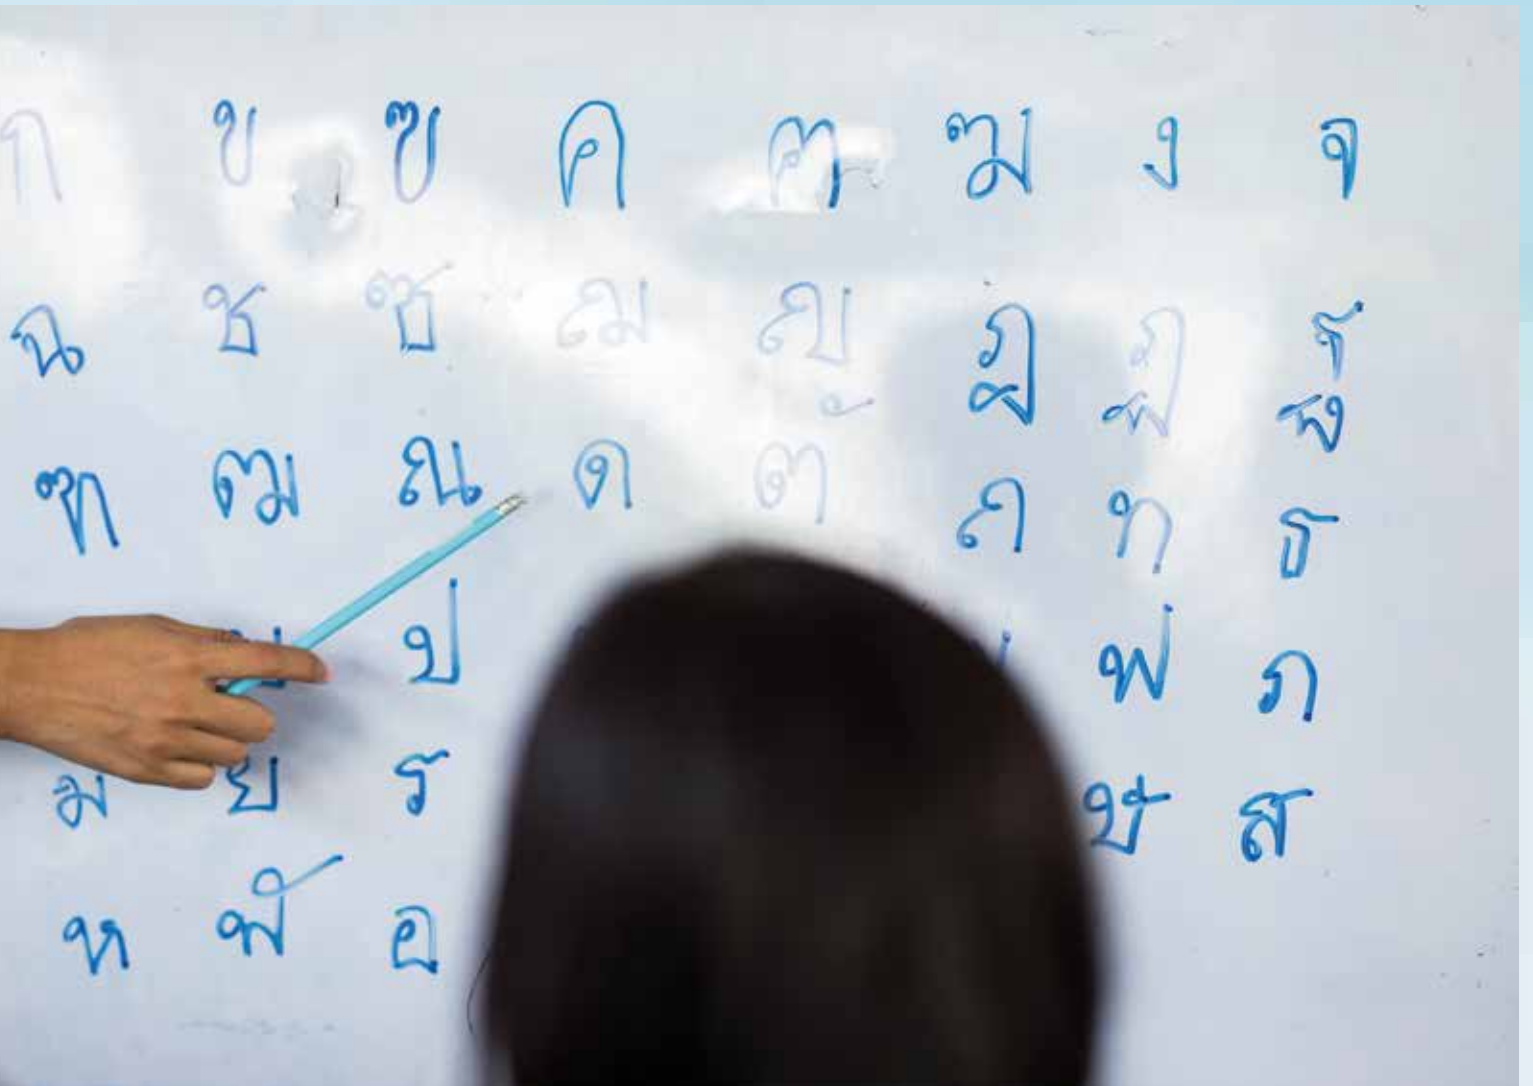 ก ข ฃ ค ฅ ฆ ง จ
ฉ ช ซ ฌ ญ ฎ ฏ ฐ
ฑ ฒ ณ ด ต ถ ท ธ
ป พ ภ
ม ย ร ษ ส
ห ฬ อ